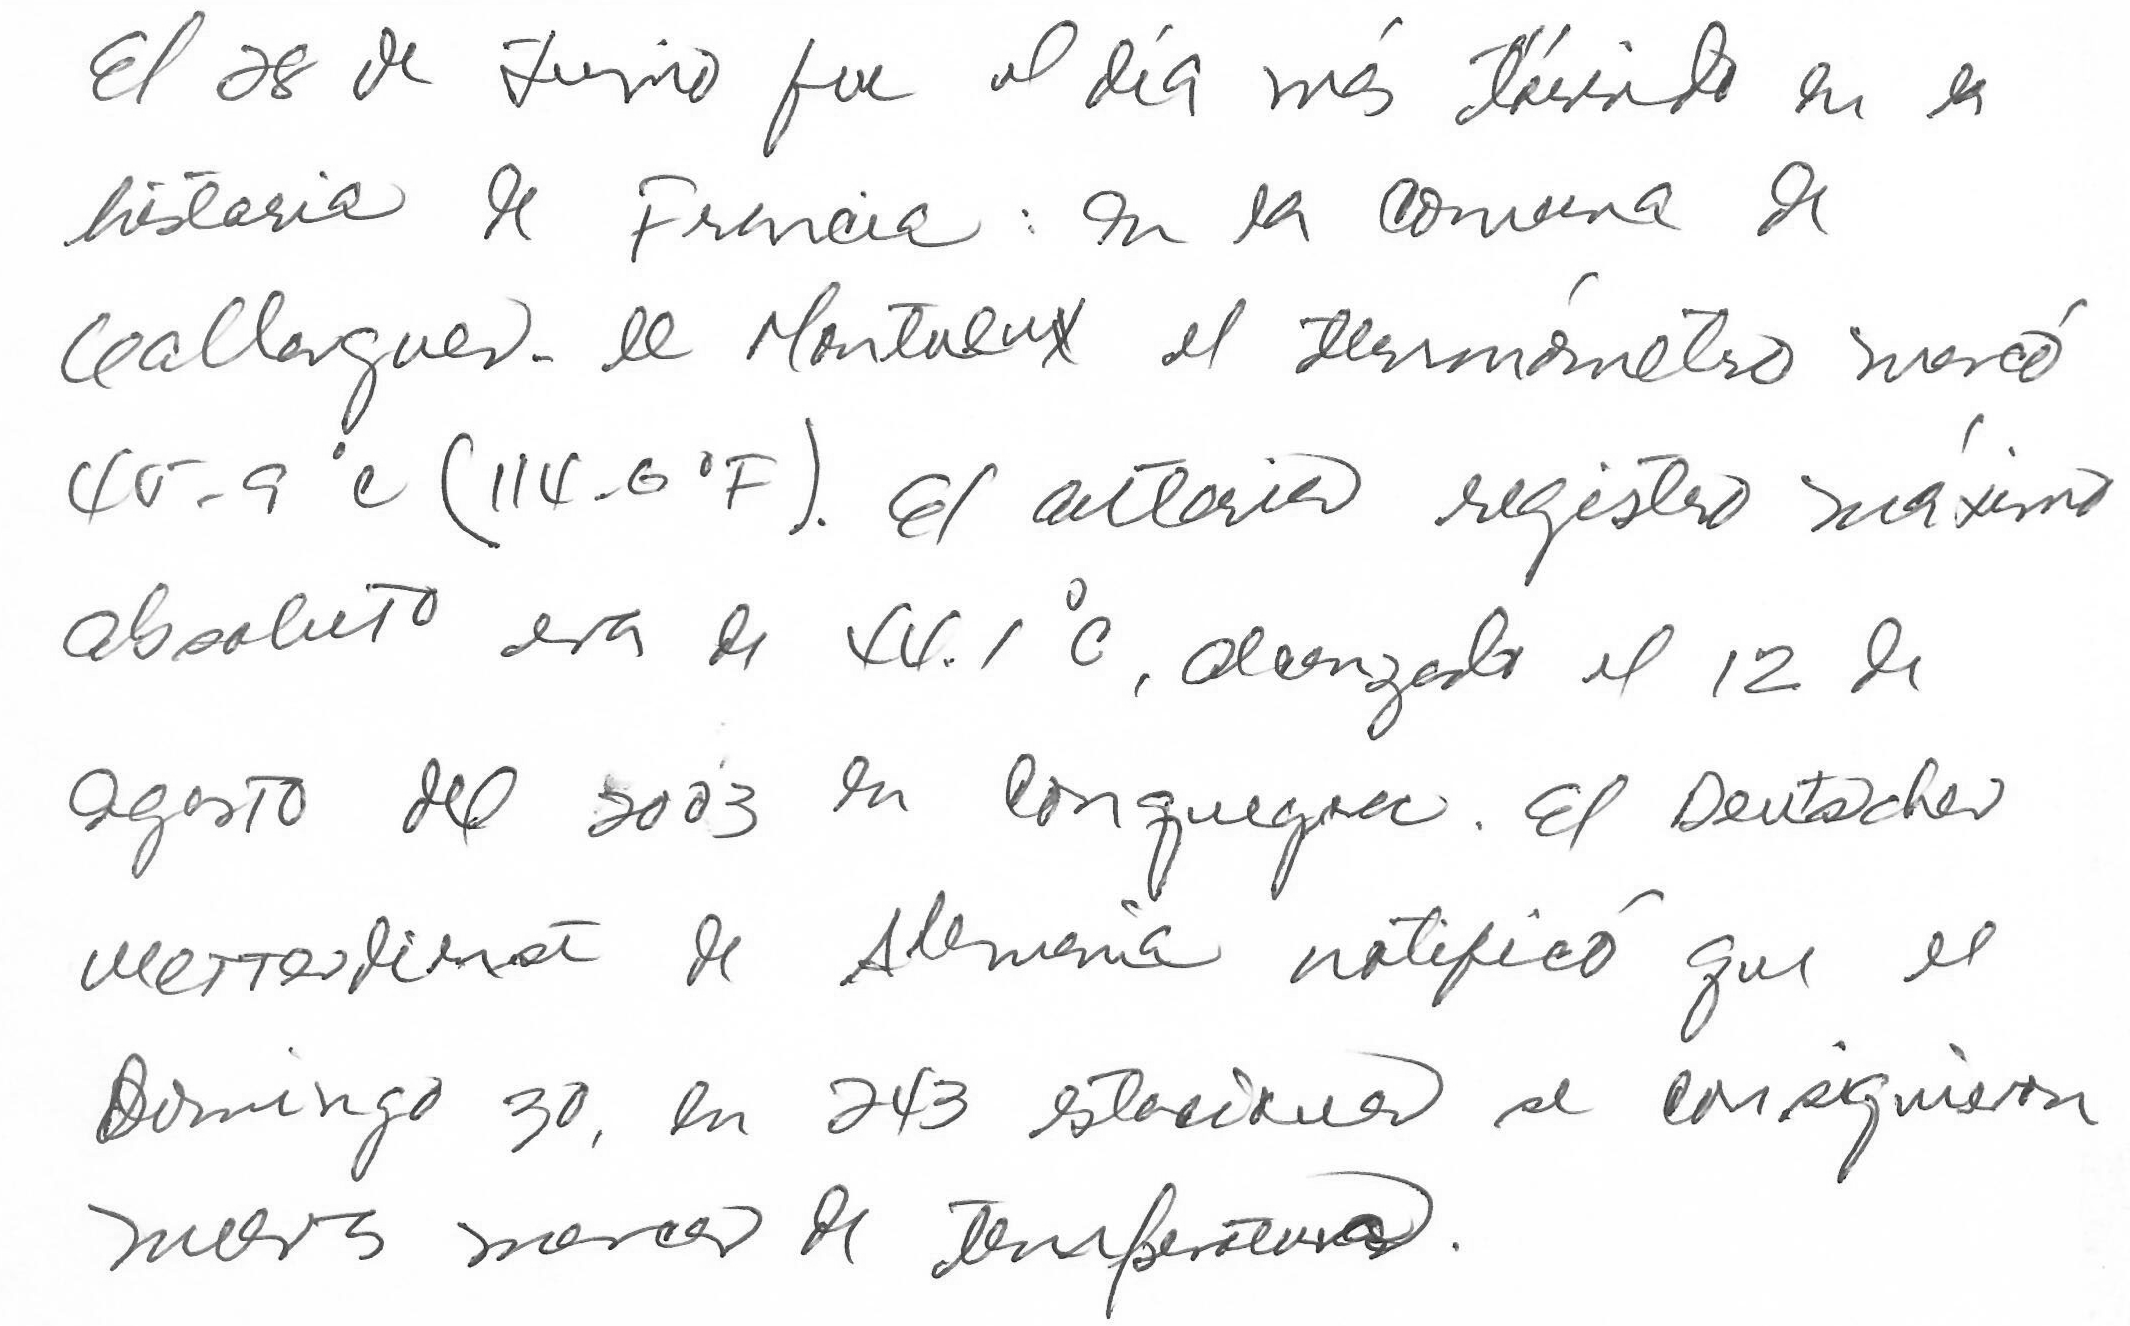 El 28 de Junio fue el día más tórrido en la
historia de Francia: en la comuna de
Gallargues-le Montueux el termómetro marcó
45.9 °C (114.6 °F). El anterior registro máximo
absoluto era de 44.1 °C, alcanzado el 12 de
agosto del 2003 en Conqueyrac. El Deutscher
Wetterdienst de Alemania notificó que el
Domingo 30, en 243 estaciones se consiguieron
nuevas marcas de temperaturas.